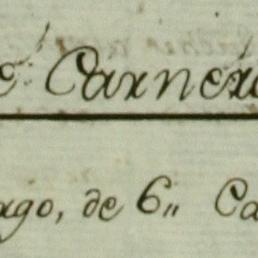 e Carnero
ago, de 6,, Ca